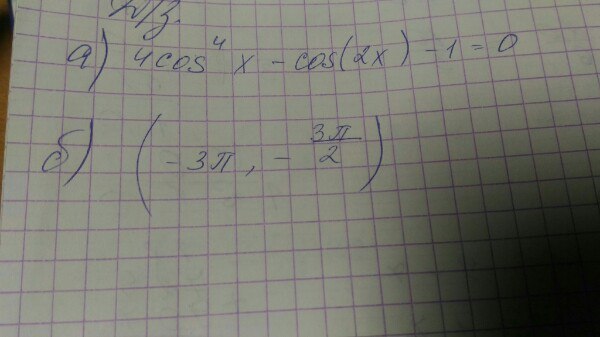 Д/З.
а) 4cos⁴x - cos(2x) - 1 = 0
б) (-3π, -3π/2)